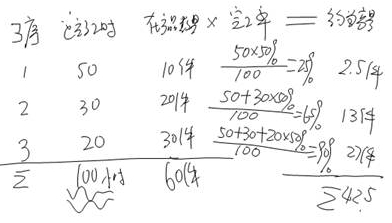 工序 定额工时 在产品数量 × 完工率 = 约当产量
1 50 10件 50×50%/100 =25% 2.5件
2 30 20件 50+30×50%/100 =65% 13件
3 20 30件 50+30+20×50%/100 =90% 27件
Σ 100小时 60件 Σ42.5